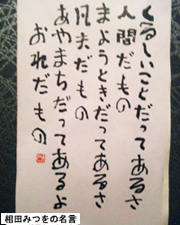 くるしいことだってあるさ
人間だもの
まようときだってあるさ
凡夫だもの
あやまちだってあるよ
おれだもの
相田みつをの名言